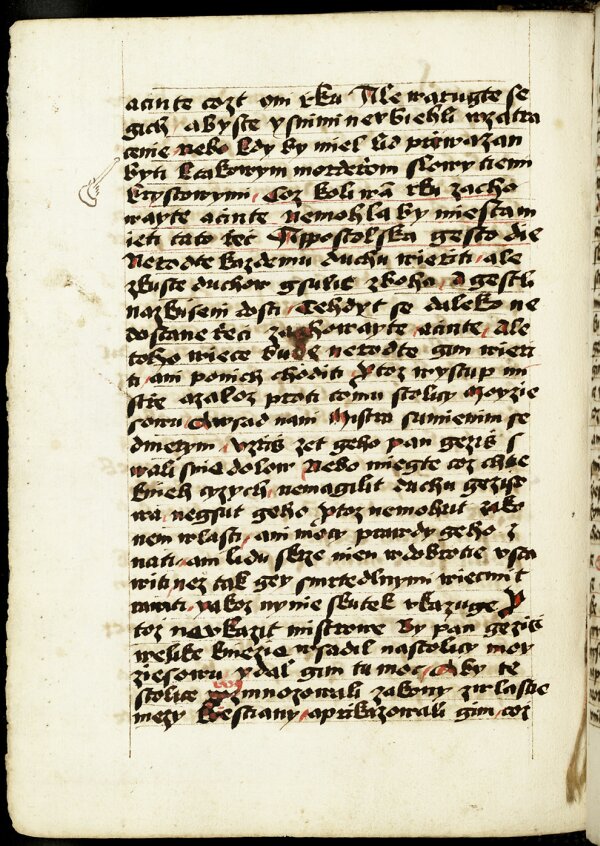 acinte cozt vm rku Ale warugte se
gich abyste ysnimi nevbiehli wzatra
cenie nebo kdy by miel lid priwazan
byti kcakowym morderom slowy tiemi
krystowymi Coz koli wa rku zacho
wayte acinte nemohla by miestam
ieti tato rec Appostolska gesto die
Nerodte kazdemu duchu wieriti ale
zkuste duchow gsulit zboha A gestli
nazkusem dosti Tehdyt se daleko ne
dostane reci zachowayte acinte Ale
toho wiece bude nerodte gim wieri
ti ani ponich choditi Protoz wystup mi
stre azaloz proti tomu stolicy moyzie
sowu Awsad nani Mistra sumienim se
dmerym Vzris zet geho pan gezis s
wali snie dolow Nebo miegte coz chce
knieh cyzych nemagilit duchu gezisso
wa negsut geho Protoz nemohut zako
nem wlasti ani mocy prawdy geho z
nati ani lidu skrze nien wdobrotie vsta
witi nez tak gey smrtedlnymi wiecmi t
rawiti yakoz nynie skutek vkazuge P
toz nevkazit mistrowe by pan gezis
welike knieze wsadil nastolicy moy
ziesowu ydal gim tu moc Aby te
stolice rozmnozowali zakony zwlastie
mezy krestiany aprikazowali gim coz